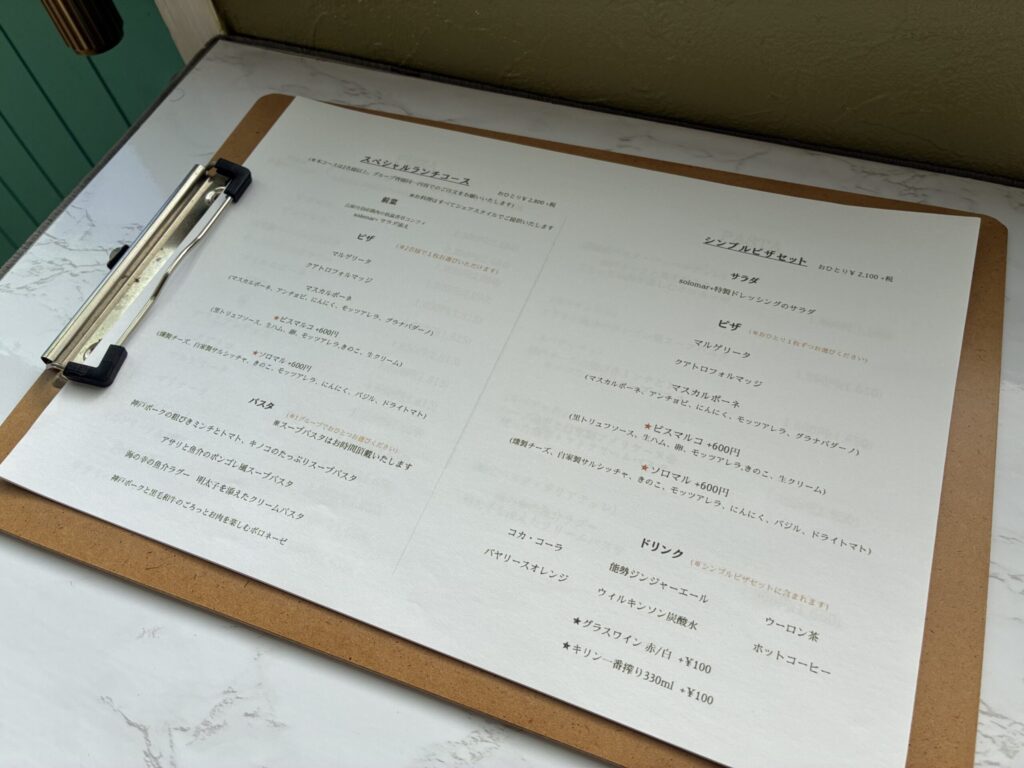 スペシャルランチコース
おひとり¥2,800+税
(※本コースは2名様以上、グループ皆様同一内容でのご注文をお願いいたします)
※お料理はすべてシェアスタイルでご提供いたします
前菜
solomar+サラダ添え
ピザ
(※2名様で1枚お選びいただけます)
マルゲリータ
クアトロフォルマッジ
マスカルポーネ
(マスカルポーネ、アンチョビ、にんにく、モッツアレラ、グラナパダーノ)
★ビスマルコ +600円
(黒トリュフソース、生ハム、卵、モッツアレラ,きのこ、生クリーム)
★ソロマル +600円
(燻製チーズ、自家製サルシッチャ、きのこ、モッツアレラ、にんにく、バジル、ドライトマト)
パスタ
(※1グループでおひとつお選びください)
※スープパスタはお時間頂戴いたします
神戸ポークの粗びきミンチとトマト、キノコのたっぷりスープパスタ
アサリと魚介のボンゴレ風スープパスタ
海の幸の魚介ラグー 明太子を添えたクリームパスタ
神戸ポークと黒毛和牛のごろっとお肉を楽しむボロネーゼ
シンプルピザセット
おひとり¥2,100+税
サラダ
solomar+特製ドレッシングのサラダ
ピザ
(※おひとり1枚ずつお選びください)
マルゲリータ
クアトロフォルマッジ
マスカルポーネ
(マスカルポーネ、アンチョビ、にんにく、モッツアレラ、グラナパダーノ)
★ビスマルコ +600円
(黒トリュフソース、生ハム、卵、モッツアレラ,きのこ、生クリーム)
★ソロマル +600円
(燻製チーズ、自家製サルシッチャ、きのこ、モッツアレラ、にんにく、バジル、ドライトマト)
ドリンク
(※シンプルピザセットに含まれます)
コカ・コーラ 能勢ジンジャーエール ウーロン茶
バヤリースオレンジ ウィルキンソン炭酸水 ホットコーヒー
★グラスワイン 赤/白 +¥100
★キリン一番搾り330ml +¥100